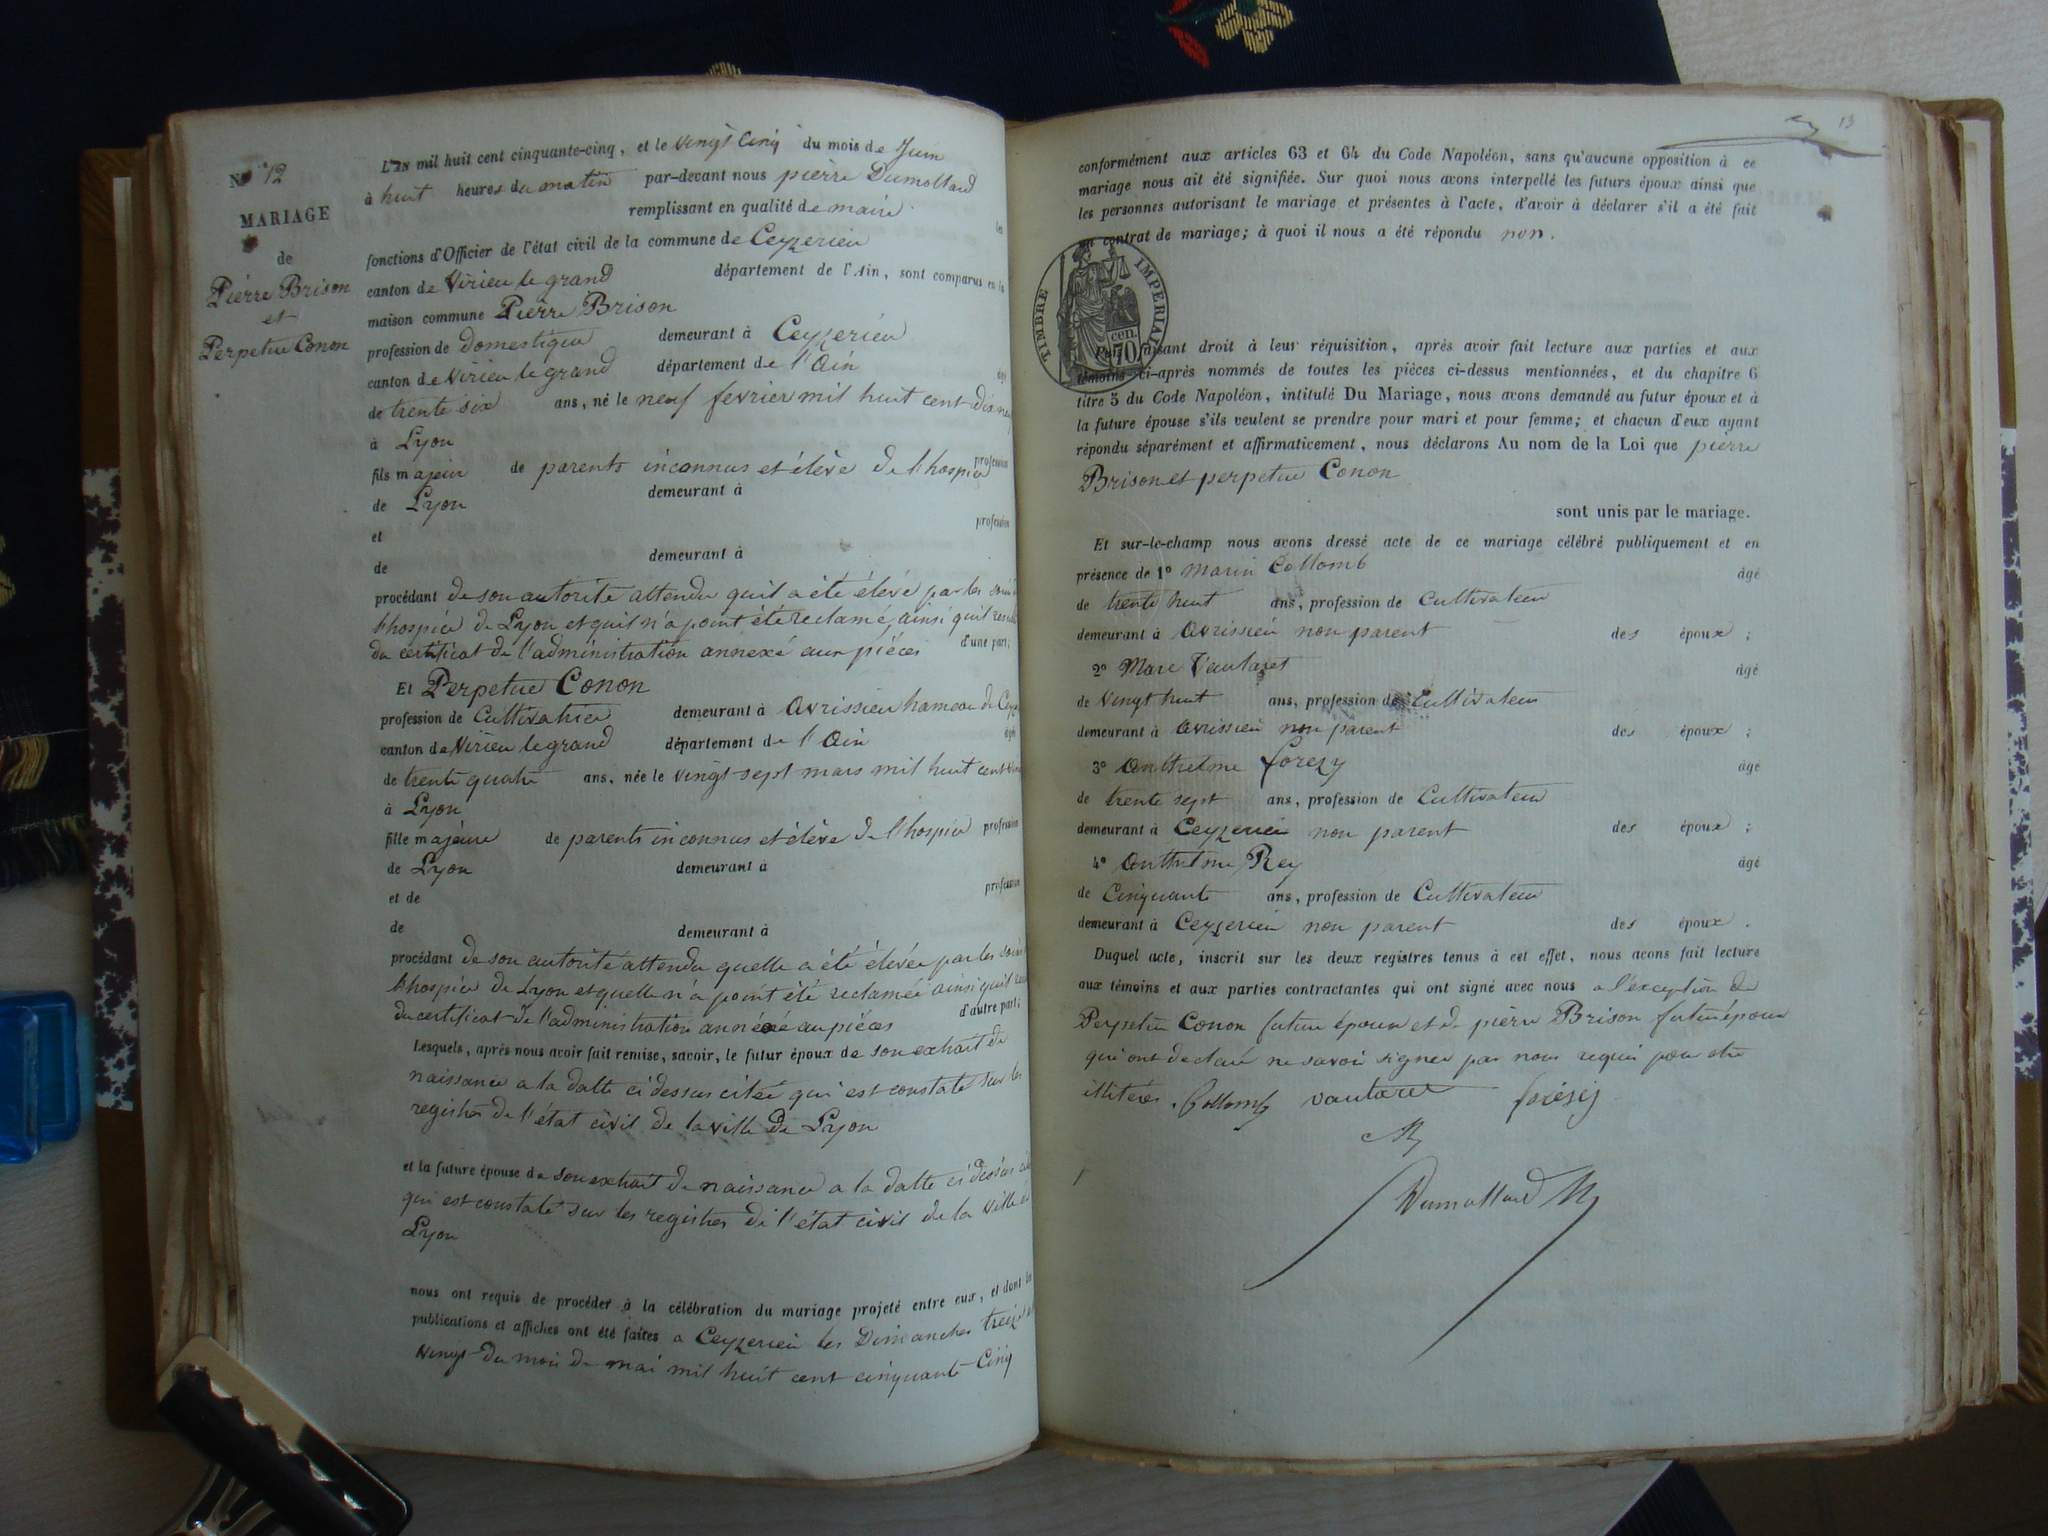 N° 12
MARIAGE
de
Pierre Brison
et
Perpetue Conon
L'AN mil huit cent cinquante-cinq, et le vingt cinq du mois de Juin
à huit heures du matin par-devant nous pierre Dumollard
remplissant en qualité de maire les
fonctions d'Officier de l'état civil de la commune de Ceyzerieu
canton de Virieu le grand département de l'Ain, sont comparus en la
maison commune Pierre Brison
profession de domestique demeurant à Ceyzerieu
canton de Virieu le grand département de l'Ain âgé
de trente six ans, né le neuf fevrier mil huit cent dix neuf
à Lyon
fils majeur de parents inconnus et élève de l'hospice profession
de Lyon demeurant à
et profession
de demeurant à
procédant de son autorité attendu quil a été élevé par les soins de
l'hospice de Lyon et quil n'a point été reclamé, ainsi quil resulte
du certificat de l'administration annexé aux pièces d'une part;
Et Perpetue Conon
profession de Cultivatrice demeurant à Avrissieu hameau de Ceyz
canton de Virieu le grand département de l'Ain âgée
de trente quatre ans, née le vingt sept mars mil huit cent vingt
à Lyon
fille majeure de parents inconnus et élève de l'hospice profession
de Lyon demeurant à
et de profession
de demeurant à
procédant de son autorité attendu quelle a été élevée par les soins de
l'hospice de Lyon et quelle n'a point été reclamée ainsi quil
du certificat de l'administration annéxé au pièces d'autre part;
Lesquels, après nous avoir fait remise, savoir, le futur époux de son extrait de
naissance a la datte ci dessus citée qui est constaté sur les
registres de l'état civil de la ville de Lyon
et la future épouse de son extrait de naissance a la datte ci dessus
qui est constaté sur les registres de l'état civil de la ville de
Lyon
nous ont requis de procéder à la célébration du mariage projeté entre eux, et dont les
publications et affiches ont été faites a Ceyzerieu les Dimanches treize et
vingt du mois de mai mil huit cent cinquante Cinq
13
conformément aux articles 63 et 64 du Code Napoléon, sans qu'aucune opposition à ce
mariage nous ait été signifiée. Sur quoi nous avons interpellé les futurs époux ainsi que
les personnes autorisant le mariage et présentes à l'acte, d'avoir à déclarer s'il a été fait
un contrat de mariage; à quoi il nous a été répondu non.
TIMBRE IMPERIAL
70 cen.
Puis, faisant droit à leur réquisition, après avoir fait lecture aux parties et aux
témoins ci-après nommés de toutes les pièces ci-dessus mentionnées, et du chapitre 6
titre 5 du Code Napoléon, intitulé Du Mariage, nous avons demandé au futur époux et à
la future épouse s'ils veulent se prendre pour mari et pour femme; et chacun d'eux ayant
répondu séparément et affirmativement, nous déclarons Au nom de la Loi que pierre
Brison et perpetue Conon
sont unis par le mariage.
Et sur-le-champ nous avons dressé acte de ce mariage célébré publiquement et en
présence de 1° Marin Collomb âgé
de trente huit ans, profession de Cultivateur
demeurant à Avrissieu non parent des époux;
2° Marc Vautaret âgé
de vingt huit ans, profession de Cultivateur
demeurant à Avrissieu non parent des époux;
3° Anthelme forezy âgé
de trente sept ans, profession de Cultivateur
demeurant à Ceyzerieu non parent des époux;
4° Anthelme Rey âgé
de Cinquante ans, profession de Cultivateur
demeurant à Ceyzerieu non parent des époux.
Duquel acte, inscrit sur les deux registres tenus à cet effet, nous avons fait lecture
aux témoins et aux parties contractantes qui ont signé avec nous a l'exception de
Perpetue Conon future épouse et de pierre Brison futur époux
qui ont declaré ne savoir signer par nous requis pour etre
illitérés. Collomb vautaret forésy
Rey
Dumollard M